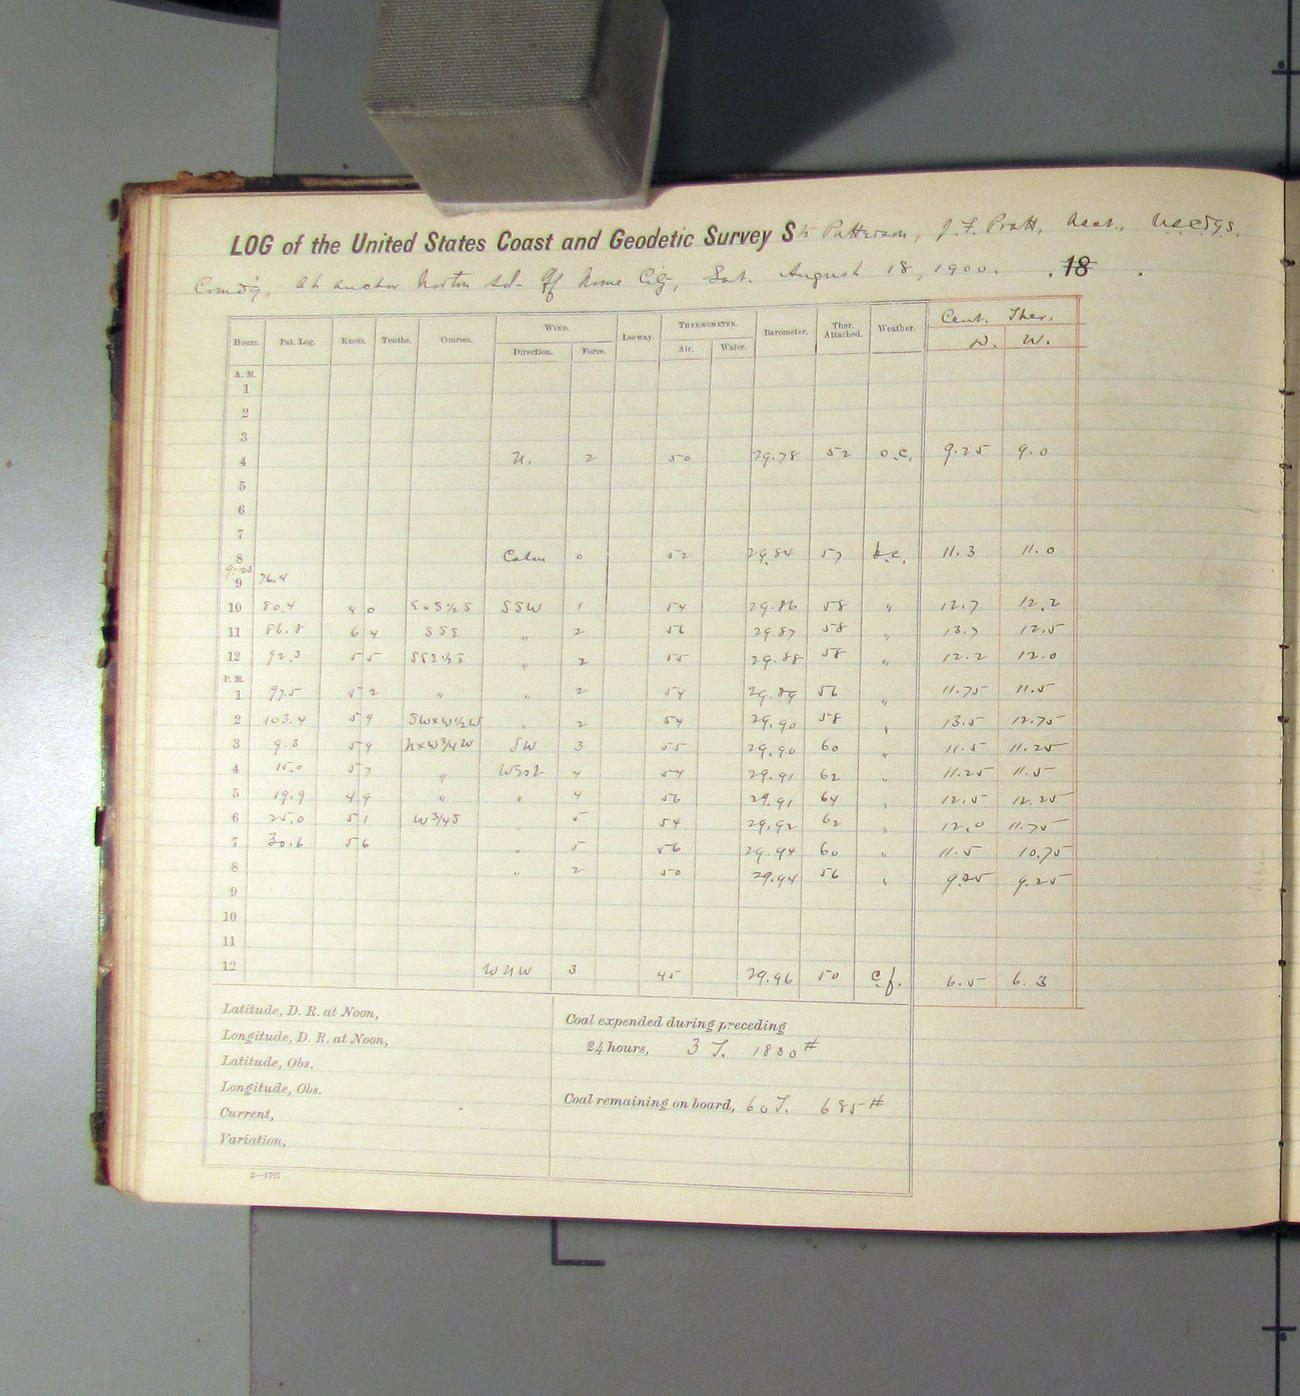 LOG of the United States Coast and Geodetic Survey Str Patterson, J. F. Pratt, Asst., U.S.C.&G.S.
Comd'g, At anchor Norton Sd. Off Nome City, Sat. August 18, 1900. 18 .
Hours. Pat. Log. Knots. Tenths. Courses. WIND. Direction. Force. Leeway. THERMOMETER. Air. Water. Barometer. Ther. Attached. Weather. Cent. Ther. D. W.
A. M.
1
2
3
4 N. 2 50 29.78 52 o.c. 9.25 9.0
5
6
7
8 Calm 0 52 29.84 57 b.c. 11.3 11.0
9 76.4
10 80.4 4 0 SxS½S SSW 1 54 29.86 58 " 12.7 12.2
11 86.8 6 4 " 2 56 29.87 58 " 13.7 12.5
12 92.3 5 5 " 2 55 29.88 58 " 12.2 12.0
P. M.
1 97.5 5 2 " " 2 54 29.89 56 " 11.75 11.5
2 103.4 5 9 SWxW½W " 2 54 29.90 58 " 13.5 12.75
3 9.3 5 9 NxW¾W SW 3 55 29.90 60 " 11.5 11.25
4 15.0 5 7 " West 4 54 29.91 62 " 11.25 11.5
5 19.9 4 9 " " 4 56 29.91 64 " 12.5 12.25
6 25.0 5 1 W¾S " 5 54 29.92 62 " 12.0 11.75
7 30.6 5 6 " 5 56 29.94 60 " 11.5 10.75
8 " 2 50 29.94 56 " 9.25 9.25
9
10
11
12 WNW 3 45 29.96 50 c.f. 6.5 6.3
Latitude, D. R. at Noon,
Longitude, D. R. at Noon,
Latitude, Obs.
Longitude, Obs.
Current,
Variation,
Coal expended during preceding
24 hours, 3 T. 1830 #
Coal remaining on board, 60 T. 685 #
2—1725